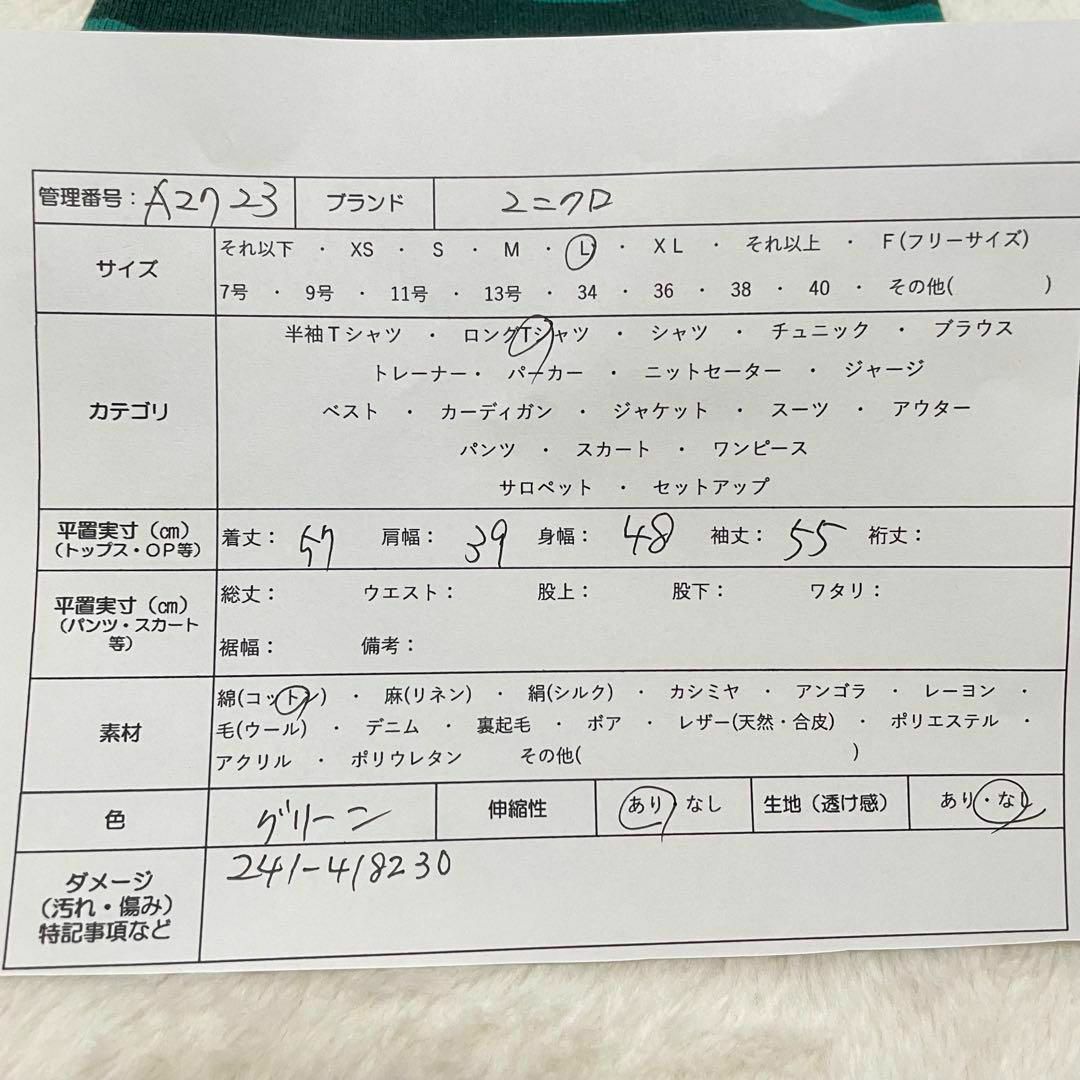 管理番号：A2723 ブランド ユニクロ
サイズ それ以下 ・ XS ・ S ・ M ・ L ・ XL ・ それ以上 ・ F(フリーサイズ)
7号 ・ 9号 ・ 11号 ・ 13号 ・ 34 ・ 36 ・ 38 ・ 40 ・ その他( )
カテゴリ 半袖Tシャツ ・ ロングTシャツ ・ シャツ ・ チュニック ・ ブラウス
トレーナー・ パーカー ・ ニットセーター ・ ジャージ
ベスト ・ カーディガン ・ ジャケット ・ スーツ ・ アウター
パンツ ・ スカート ・ ワンピース
サロペット ・ セットアップ
平置実寸（㎝）
（トップス・OP等） 着丈： 57 肩幅： 39 身幅： 48 袖丈： 55 裄丈：
平置実寸（㎝）
（パンツ・スカート
等） 総丈： ウエスト： 股上： 股下： ワタリ：
裾幅： 備考：
素材 綿(コットン) ・ 麻(リネン) ・ 絹(シルク) ・ カシミヤ ・ アンゴラ ・ レーヨン ・
毛(ウール) ・ デニム ・ 裏起毛 ・ ボア ・ レザー(天然・合皮) ・ ポリエステル ・
アクリル ・ ポリウレタン その他( )
色 グリーン 伸縮性 あり・なし 生地（透け感） あり・なし
ダメージ
（汚れ・傷み）
特記事項など 241-418230